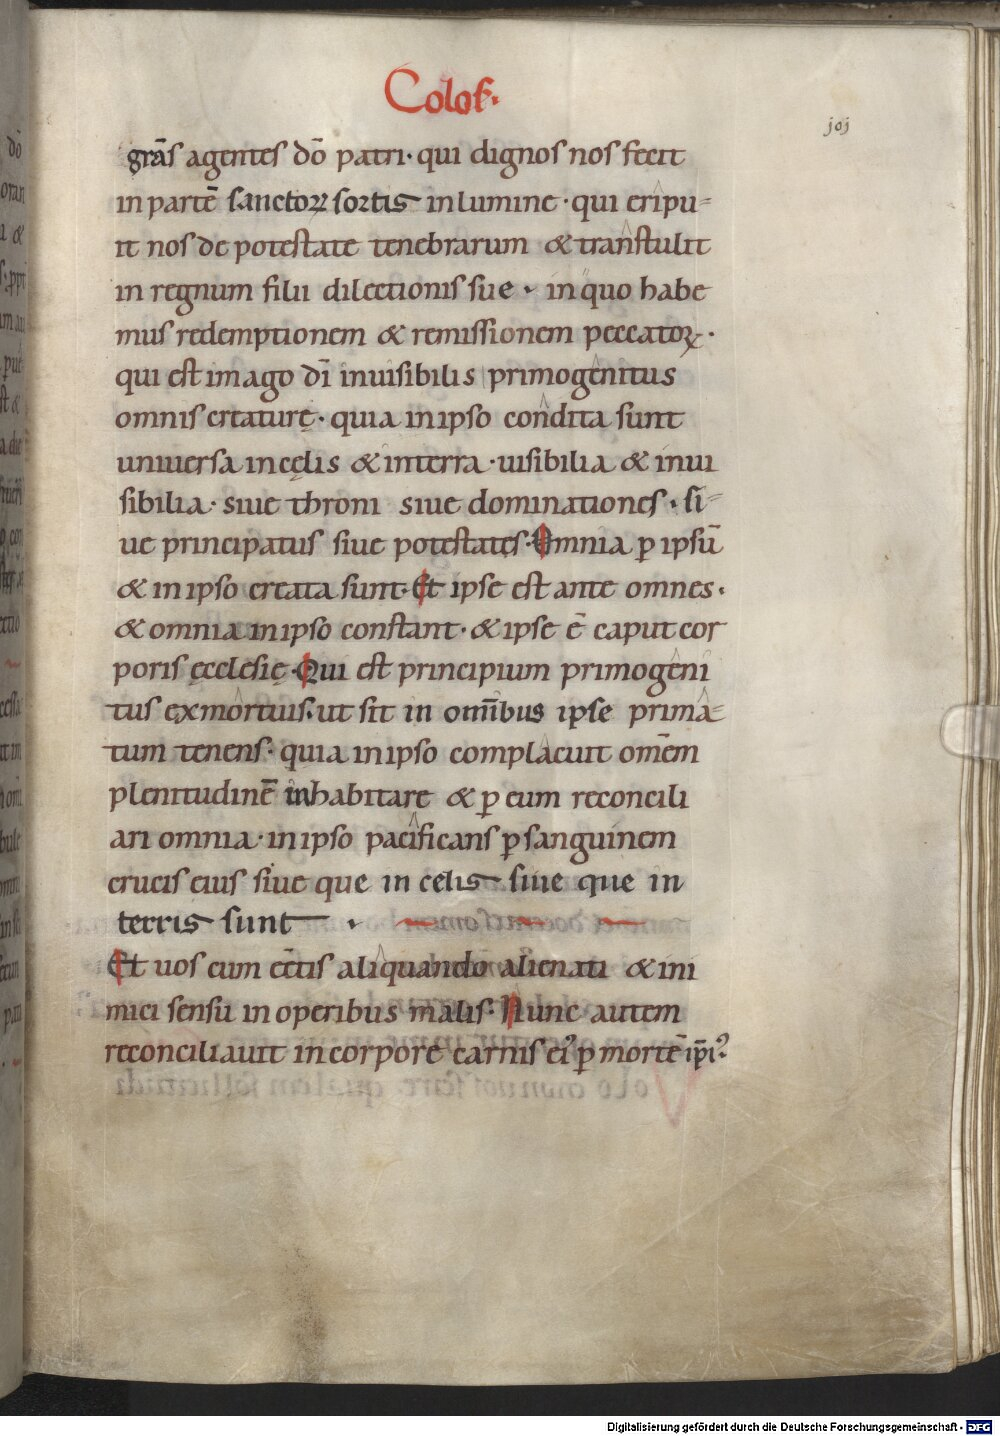 Colos.
joj
grãs agentes dõ patri · qui dignos nos fecit
in partẽ sanctoꝝ sortis in lumine · qui eripu-
it nos de potestate tenebrarum & transtulit
in regnum filii dilectionis sue · in quo habe
mus redemptionem & remissionem peccatoꝝ ·
qui est imago dĩ inuisibilis primogenitus
omnis creaturę · quia in ipso condita sunt
uniuersa in cęlis & in terra · uisibilia & inui
sibilia · siue throni siue dominationes · si-
ue principatus siue potestates · Omnia ꝑ ipsũ
& in ipso creata sunt · Et ipse est ante omnes ·
& omnia in ipso constant · & ipse ẽ caput cor
poris ęcclesię · Qui est principium primogeni
tus ex mortuis · ut sit in om̃ibus ipse prima-
tum tenens · quia in ipso complacuit om̃em
plenitudinẽ inhabitare & ꝑ eum reconcili
ari omnia · in ipso pacificans ꝑ sanguinem
crucis eius siue que in celis siue que in
terris sunt ·
Et uos cum eẽtis aliquando alienati & ini
mici sensu in operibus malis · Nunc autem
reconciliauit in corpore carnis eiꝰ ꝑ mortẽ ip̃iꝰ ·
Digitalisierung gefördert durch die Deutsche Forschungsgemeinschaft - DFG